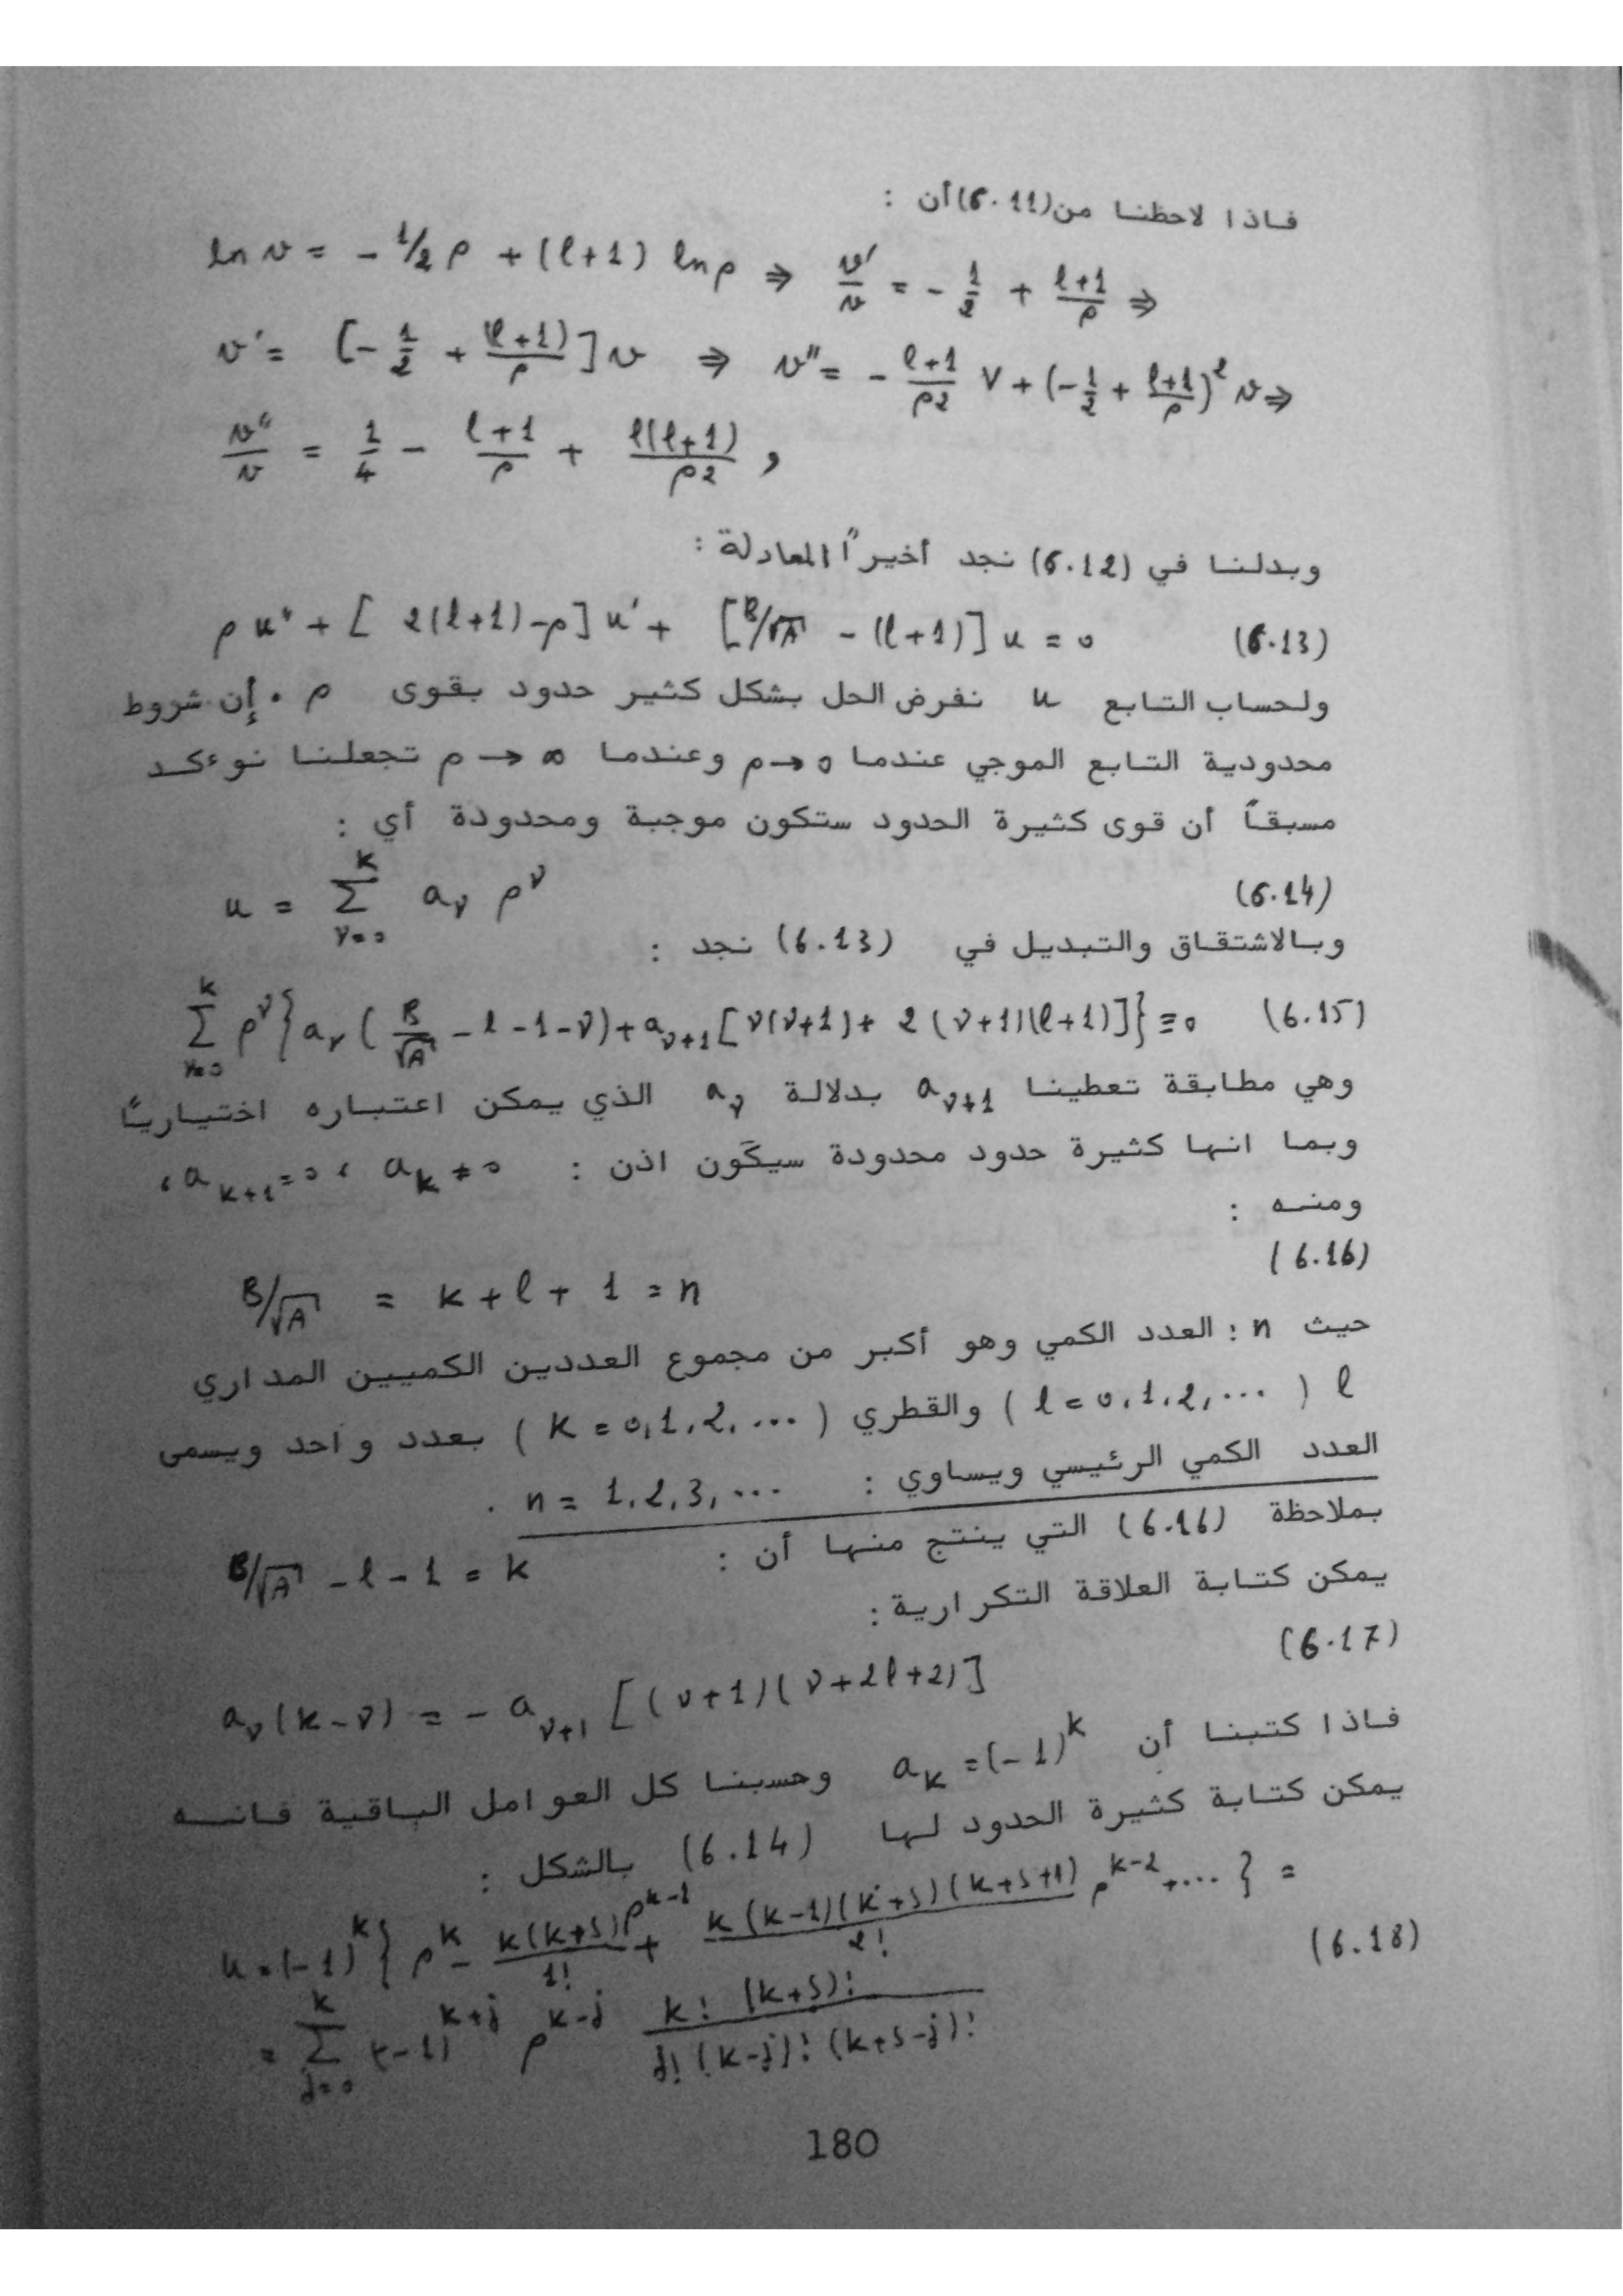 فاذا لاحظنا من (6.11) أن :
ln v = - 1/2 ρ + (l+1) ln ρ ⇒ v'/v = - 1/2 + (l+1)/ρ ⇒
v' = [- 1/2 + (l+1)/ρ] v ⇒ v'' = - (l+1)/ρ² V + (- 1/2 + (l+1)/ρ)² v ⇒
v''/v = 1/4 - (l+1)/ρ + l(l+1)/ρ² ,
وبدلنا في (6.12) نجد أخيراً المعادلة :
ρ u'' + [ 2(l+1) - ρ] u' + [B/√A - (l+1)] u = 0 (6.13)
ولحساب التابع u نفرض الحل بشكل كثير حدود بقوى ρ . إن شروط
محدودية التابع الموجي عندما ρ → 0 وعندما ρ → ∞ تجعلنا نوءكد
مسبقاً أن قوى كثيرة الحدود ستكون موجبة ومحدودة أي :
u = Σ_{ν=0}^{k} a_ν ρ^ν (6.14)
وبالاشتقاق والتبديل في (6.13) نجد :
Σ_{ν=0}^{k} ρ^ν {a_ν ( B/√A - l - 1 - ν) + a_{ν+1} [ν(ν+1) + 2 (ν+1)(l+1)]} ≡ 0 (6.15)
وهي مطابقة تعطينا a_{ν+1} بدلالة a_ν الذي يمكن اعتباره اختيارياً
وبما انها كثيرة حدود محدودة سيكون اذن : a_k ≠ 0 ، a_{k+1} = 0 ،
ومنه :
(6.16)
B/√A = k + l + 1 = n
حيث n : العدد الكمي وهو أكبر من مجموع العددين الكميين المداري
l ( l = 0,1,2,... ) والقطري ( k = 0,1,2,... ) بعدد واحد ويسمى
العدد الكمي الرئيسي ويساوي : n = 1,2,3,... .
بملاحظة (6.16) التي ينتج منها أن :
B/√A - l - 1 = k
يمكن كتابة العلاقة التكرارية :
(6.17)
a_ν (k-ν) = - a_{ν+1} [(ν+1)(ν+2l+2)]
فاذا كتبنا أن a_k = (-1)^k وحسبنا كل العوامل الباقية فانه
يمكن كتابة كثيرة الحدود لها (6.14) بالشكل :
u = (-1)^k { ρ^k - k(k+s)/1! ρ^{k-1} + k(k-1)(k+s)(k+s+1)/2! ρ^{k-2} + ... } =
(6.18)
= Σ_{j=0}^{k} (-1)^{k+j} ρ^{k-j} k! (k+s)! / j! (k-j)! (k+s-j)!
180